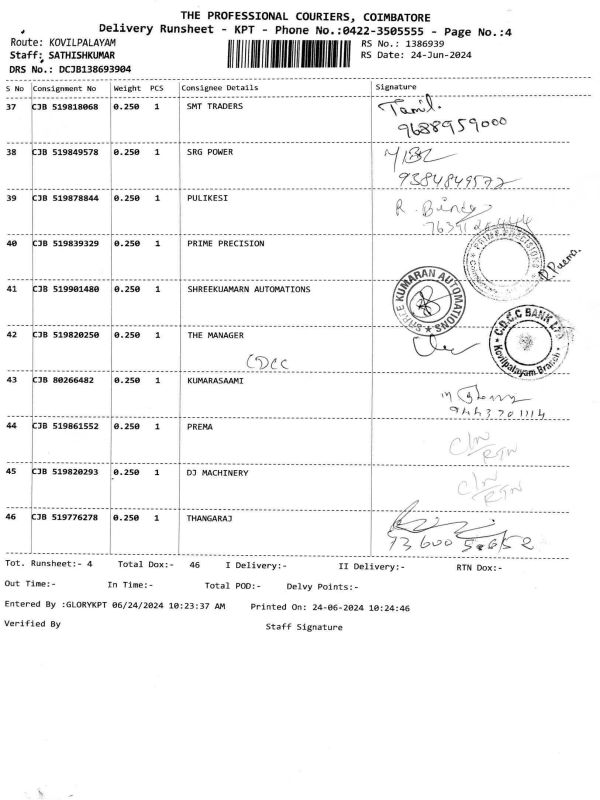 THE PROFESSIONAL COURIERS, COIMBATORE
Delivery Runsheet - KPT - Phone No.:0422-3505555 - Page No.:4
Route: KOVILPALAYAM RS No.: 1386939
Staff: SATHISHKUMAR RS Date: 24-Jun-2024
DRS No.: DCJB138693904
S No Consignment No Weight PCS Consignee Details Signature
37 CJB 519818068 0.250 1 SMT TRADERS Tamil.
9688959000
38 CJB 519849578 0.250 1 SRG POWER
9384849572
39 CJB 519878844 0.250 1 PULIKESI R. Bindu
40 CJB 519839329 0.250 1 PRIME PRECISION
PRIME PRECISIONS
41 CJB 519901480 0.250 1 SHREEKUAMARN AUTOMATIONS
SHREE KUMARAN AUTOMATIONS
42 CJB 519820250 0.250 1 THE MANAGER
CDCC
C.D.C.C BANK LTD
Kovilpalayam Branch
43 CJB 80266482 0.250 1 KUMARASAAMI
9443701114
44 CJB 519861552 0.250 1 PREMA C/N
RTN
45 CJB 519820293 0.250 1 DJ MACHINERY C/N
RTN
46 CJB 519776278 0.250 1 THANGARAJ
Tot. Runsheet:- 4 Total Dox:- 46 I Delivery:- II Delivery:- RTN Dox:-
Out Time:- In Time:- Total POD:- Delvy Points:-
Entered By :GLORYKPT 06/24/2024 10:23:37 AM Printed On: 24-06-2024 10:24:46
Verified By Staff Signature